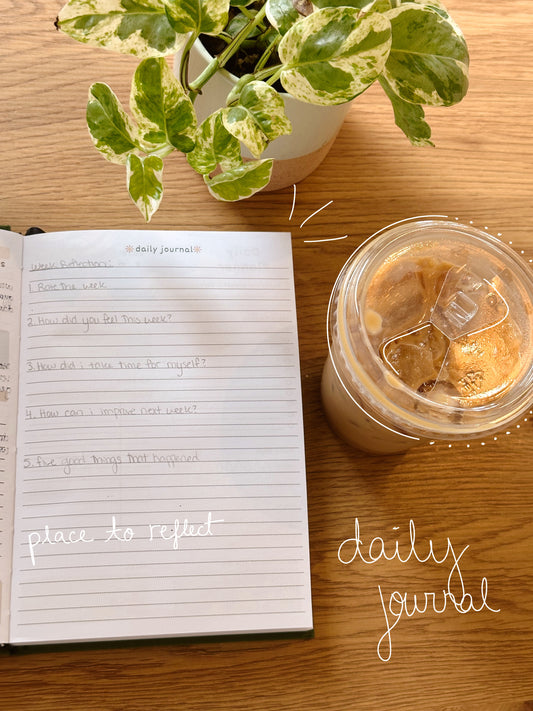 daily journal
Week Reflection:
1. Rate the week
2. How did you feel this week?
3. How did i take time for myself?
4. How can i improve next week?
5. five good things that happened
place to reflect
daily
journal